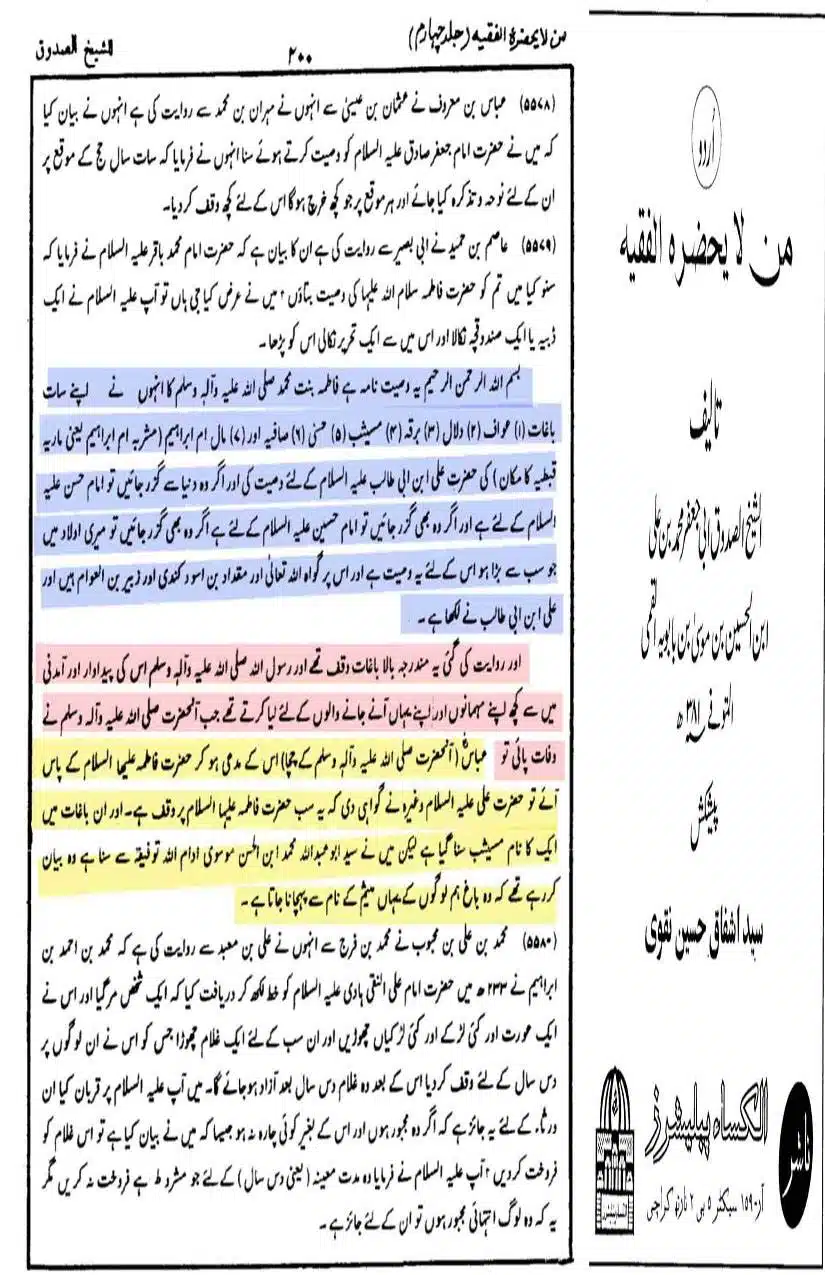 من لا یحضرہ الفقیہ (جلد چہارم)
۲۰۰
الشیخ الصدوق
(۵۵۷۸) عباس بن معروف نے عثمان بن عیسیٰ سے انہوں نے مہران بن محمد سے روایت کی ہے انہوں نے بیان کیا
کہ میں نے حضرت امام جعفر صادق علیہ السلام کو وصیت کرتے ہوئے سنا انہوں نے فرمایا کہ سات سال حج کے موقع پر
ان کے لئے نوحہ و تذکرہ کیا جائے اور ہر موقع پر جو کچھ خرچ ہوگا اس کے لئے کچھ وقف کردیا۔
(۵۵۷۹) عاصم بن حمید نے ابی بصیر سے روایت کی ہے ان کا بیان ہے کہ حضرت امام محمد باقر علیہ السلام نے فرمایا کہ
سنو کیا میں تم کو حضرت فاطمہ سلام اللہ علیہا کی وصیت بتاؤں ؟ میں نے عرض کیا جی ہاں تو آپ علیہ السلام نے ایک
ڈبیہ یا ایک صندوقچہ نکالا اور اس میں سے ایک تحریر نکالی اس کو پڑھا۔
بسم اللہ الرحمن الرحیم یہ وصیت نامہ ہے فاطمہ بنت محمد صلی اللہ علیہ وآلہ وسلم کا انہوں نے اپنے سات
باغات (۱) عواف (۲) دلال (۳) برقہ (۴) مسیثب (۵) حسنیٰ (۶) صافیہ اور (۷) مال ام ابراہیم (مشربہ ام ابراہیم یعنی ماریہ
قبطیہ کا مکان) کی حضرت علی ابن ابی طالب علیہ السلام کے لئے وصیت کی اور اگر وہ دنیا سے گزر جائیں تو امام حسن علیہ
السلام کے لئے ہے اور اگر وہ بھی گزر جائیں تو امام حسین علیہ السلام کے لئے ہے اگر وہ بھی گزر جائیں تو میری اولاد میں
جو سب سے بڑا ہو اس کے لئے یہ وصیت ہے اور اس پر گواہ اللہ تعالیٰ اور مقداد بن اسود کندی اور زبیر بن العوام ہیں اور
علی ابن ابی طالب نے لکھا ہے۔
اور روایت کی گئی یہ مندرجہ بالا باغات وقف تھے اور رسول اللہ صلی اللہ علیہ وآلہ وسلم اس کی پیداوار اور آمدنی
میں سے کچھ اپنے مہمانوں اور اپنے یہاں آنے جانے والوں کے لئے لیا کرتے تھے جب آنحضرت صلی اللہ علیہ وآلہ وسلم نے
وفات پائی تو عباسؓ (آنحضرت صلی اللہ علیہ وآلہ وسلم کے چچا) اس کے مدعی ہو کر حضرت فاطمہ علیہا السلام کے پاس
آئے تو حضرت علی علیہ السلام وغیرہ نے گواہی دی کہ یہ سب حضرت فاطمہ علیہا السلام پر وقف ہے۔ اور ان باغات میں
ایک کا نام مسیثب سنا گیا ہے لیکن میں نے سید ابو عبداللہ محمد ابن الحسن موسوی ادام اللہ توفیقہ سے سنا ہے وہ بیان
کر رہے تھے کہ وہ باغ ہم لوگوں کے یہاں میثم کے نام سے پہچانا جاتا ہے۔
(۵۵۸۰) محمد بن علی بن محبوب نے محمد بن فرج سے انہوں نے علی بن معبد سے روایت کی ہے کہ محمد بن احمد بن
ابراہیم نے ۲۳۳ھ میں حضرت امام علی النقی ہادی علیہ السلام کو خط لکھ کر دریافت کیا کہ ایک شخص مرگیا اور اس نے
ایک عورت اور کئی لڑکے اور کئی لڑکیاں چھوڑیں اور ان سب کے لئے ایک غلام چھوڑا جس کو اس نے ان لوگوں پر
دس سال کے لئے وقف کردیا اس کے بعد وہ غلام دس سال بعد آزاد ہوجائے گا۔ میں آپ علیہ السلام پر قربان کیا ان
ورثاء کے لئے یہ جائز ہے کہ اگر وہ مجبور ہوں اور اس کے بغیر کوئی چارہ نہ ہو جیسا کہ میں نے بیان کیا ہے تو اس غلام کو
فروخت کردیں ؟ آپ علیہ السلام نے فرمایا وہ مدت معینہ (یعنی دس سال) کے لئے جو مشروط ہے فروخت نہ کریں مگر
یہ کہ وہ لوگ انتہائی مجبور ہوں تو ان کے لئے جائز ہے۔
اردو
من لا یحضرہ الفقیہ
تالیف
الشیخ الصدوق ابی جعفر محمد بن علی
ابن الحسین بن موسیٰ بن بابویہ القمی
المتوفی ۳۸۱ھ
پیشکش
سید اشفاق حسین نقوی
ناشر
الکساء پبلیشرز
آر-۱۵۹ سیکٹر ۵ بی ۲ نارتھ کراچی